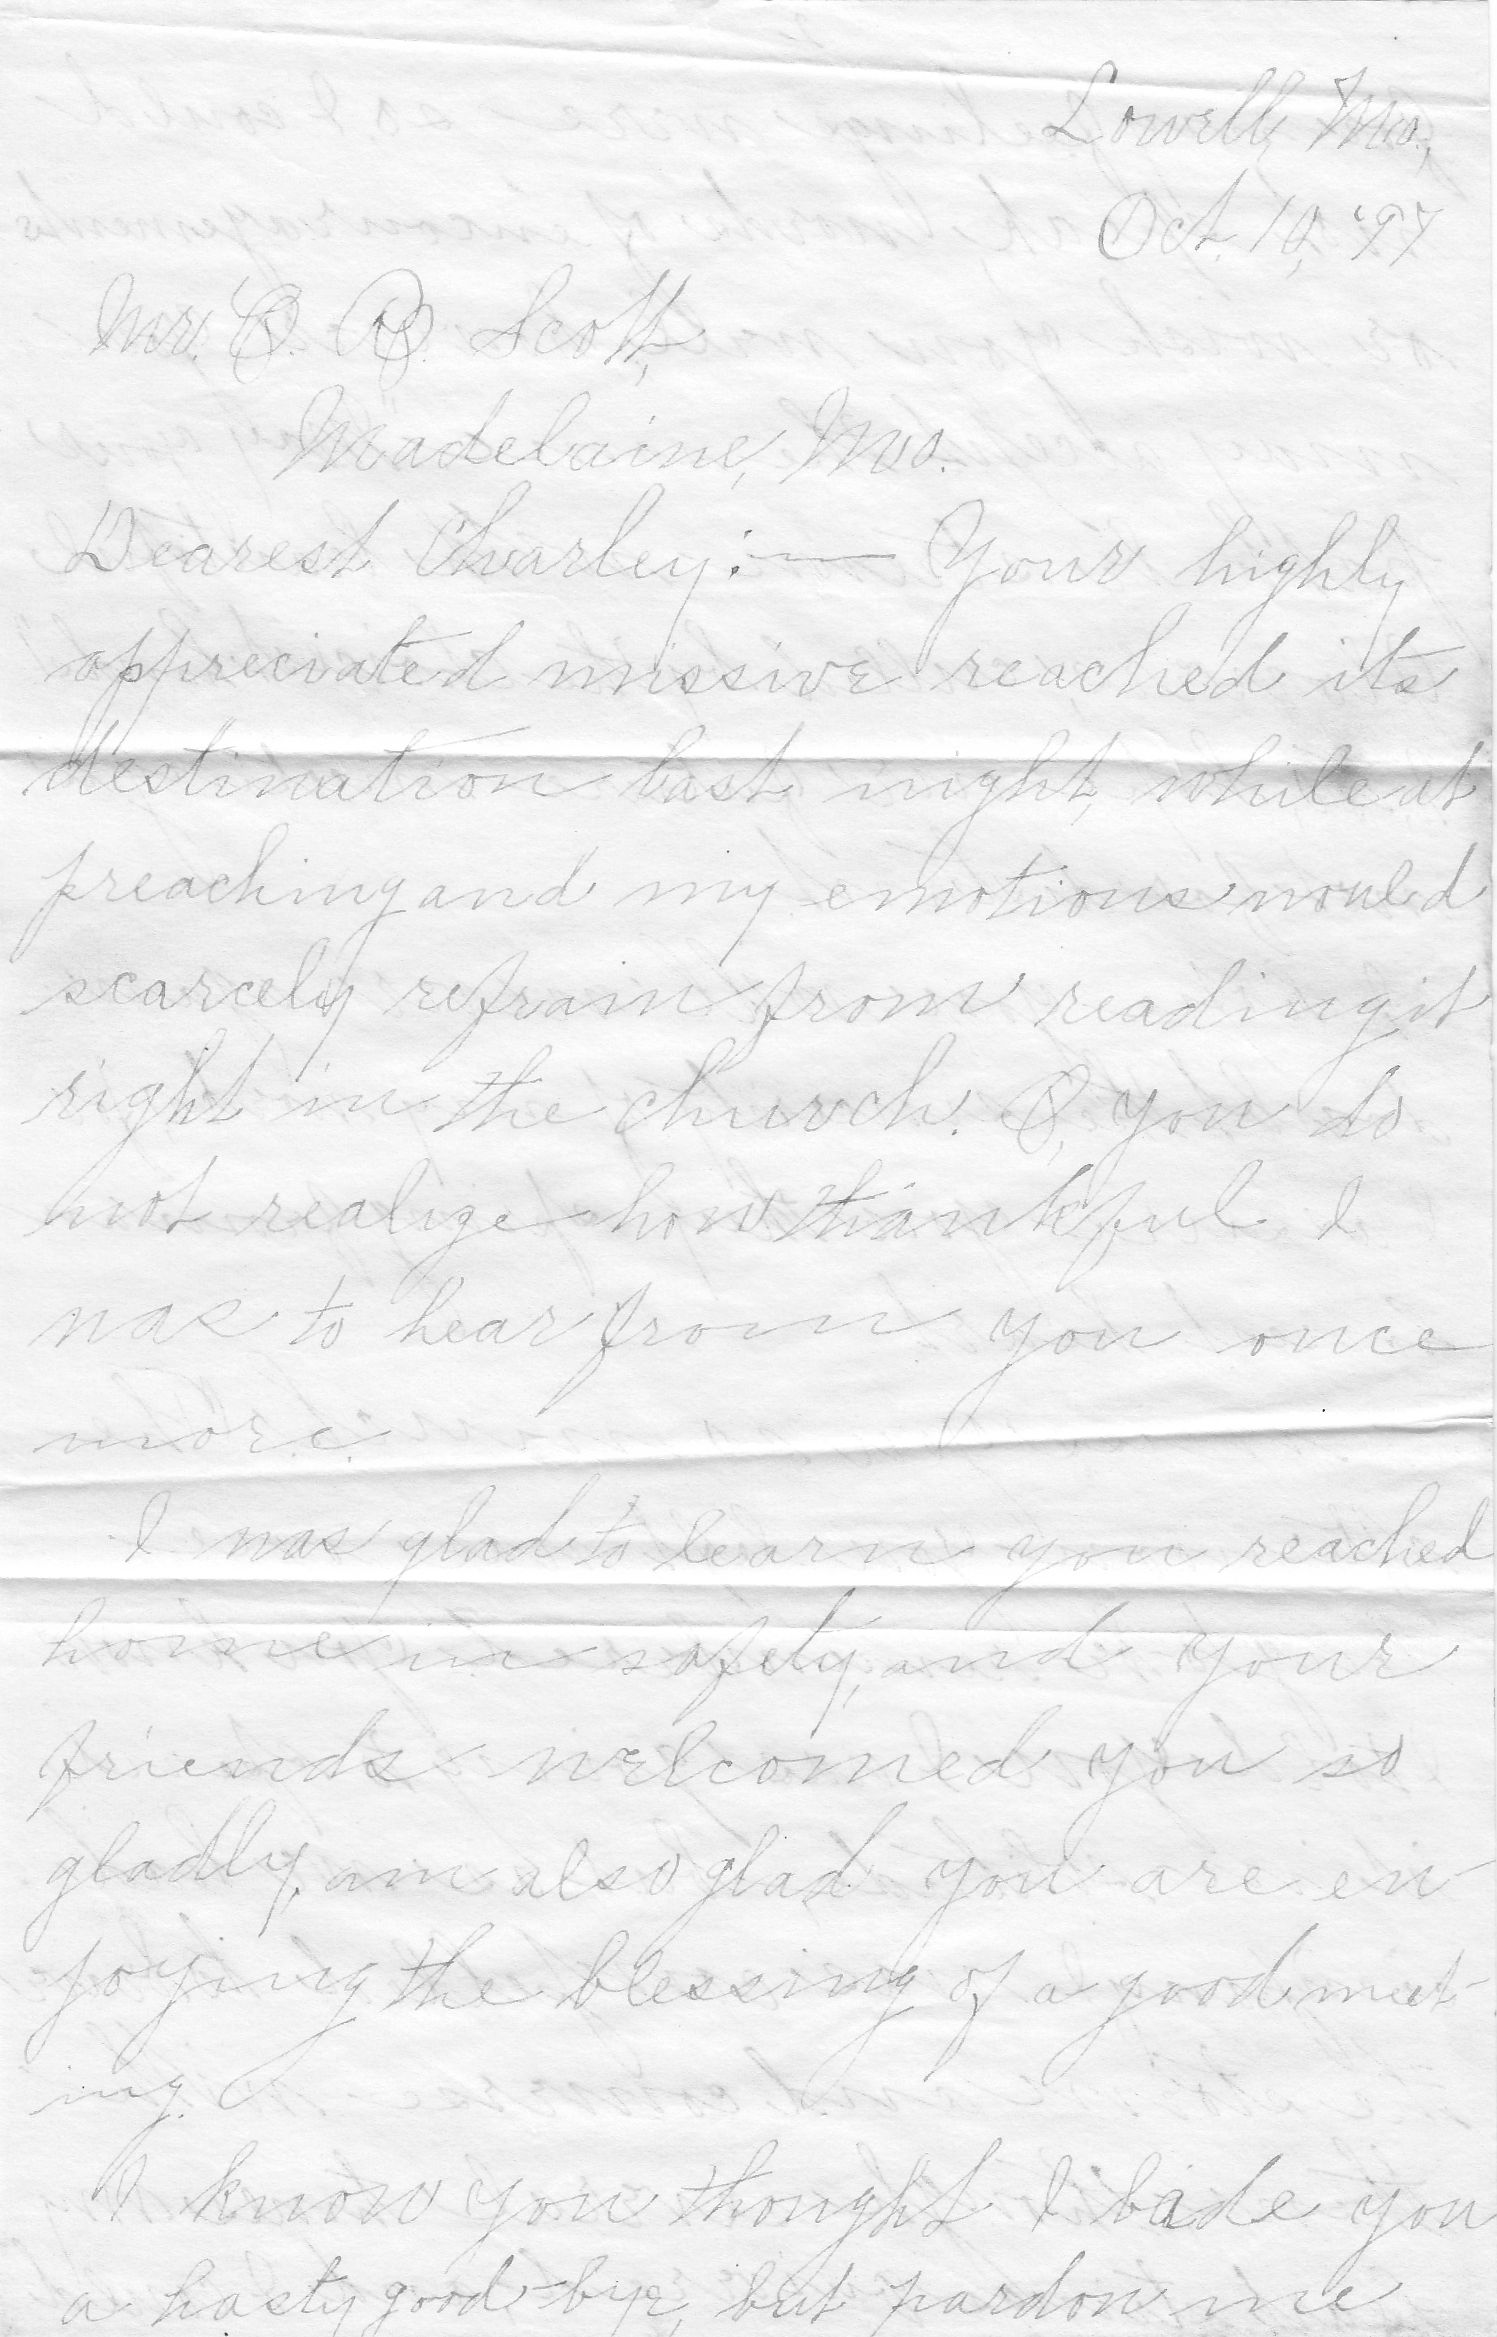 Lowell, Mo.,
Oct. 10, '97
Mr. C. B. Scott,
Madelaine, Mo.
Dearest Charley:— Your highly
appreciated missive reached its
destination last night, while at
preaching and my emotions would
scarcely refrain from reading it
right in the church. O, you do
not realize how thankful I
was to hear from you once
more.
I was glad to learn you reached
home in safety, and your
friends welcomed you so
gladly, am also glad you are en-
joying the blessing of a good meet-
ing.
I know you thought I bade you
a hasty good-bye, but pardon me